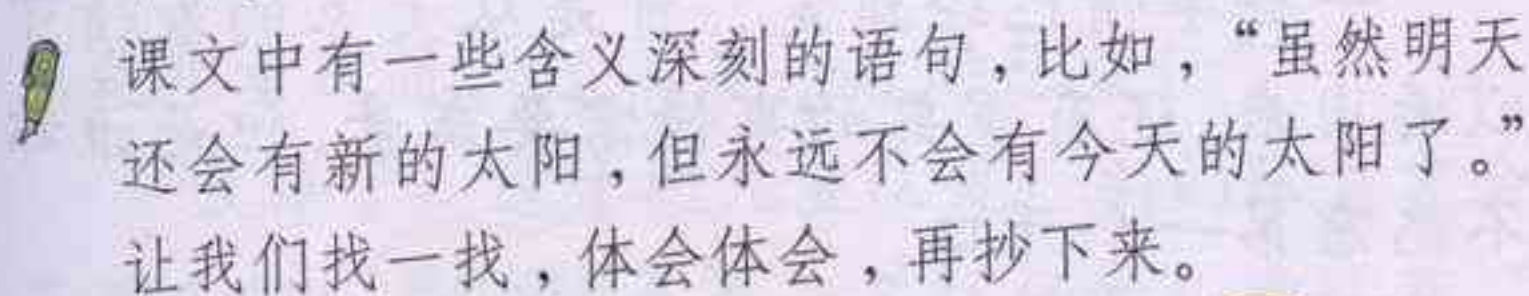 课文中有一些含义深刻的语句，比如，“虽然明天
还会有新的太阳，但永远不会有今天的太阳了。”
让我们找一找，体会体会，再抄下来。